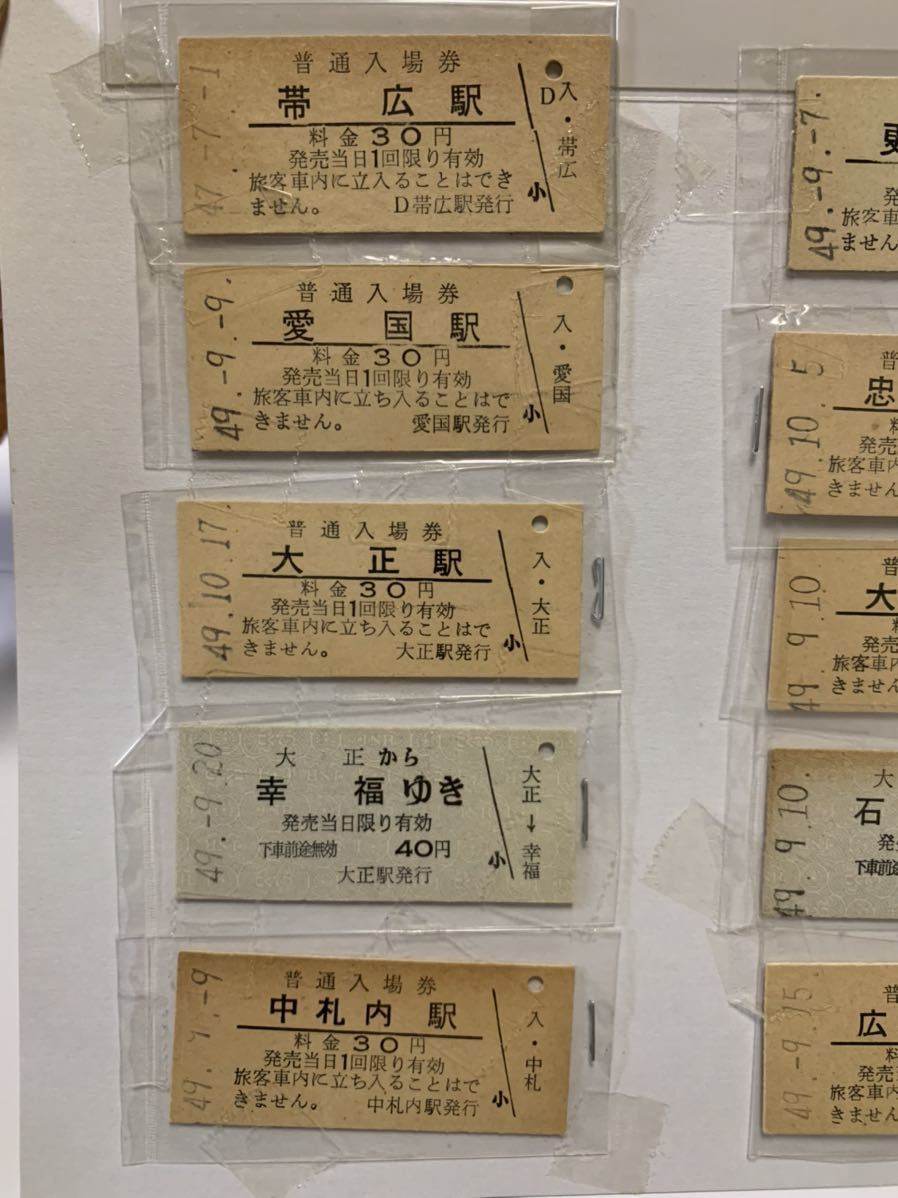 47.-7.-1
普通入場券
帯広駅
料金30円
発売当日1回限り有効
旅客車内に立入ることはでき
ません。 D帯広駅発行
小
D
入・帯広
49.-9.-9.
普通入場券
愛国駅
料金30円
発売当日1回限り有効
旅客車内に立ち入ることはで
きません。 愛国駅発行
小
入・愛国
49.10.17.
普通入場券
大正駅
料金30円
発売当日1回限り有効
旅客車内に立ち入ることはで
きません。 大正駅発行
小
入・大正
49.-9.20
大正から
幸福ゆき
発売当日限り有効
下車前途無効 40円
大正駅発行
小
大正→幸福
普通入場券
中札内駅
料金30円
発売当日1回限り有効
旅客車内に立ち入ることはで
きません。 中札内駅発行
小
入・中札
49.-9.-7.
旅客車
ません
49.10.5
普
忠
料
発売
旅客車内
きません
49 9 10
普
大
料
発売
旅客車内
きません
49. 9 10.
大
石
発
下車前途
49.-9.25.
普
広
料
発売
旅客車内
きません